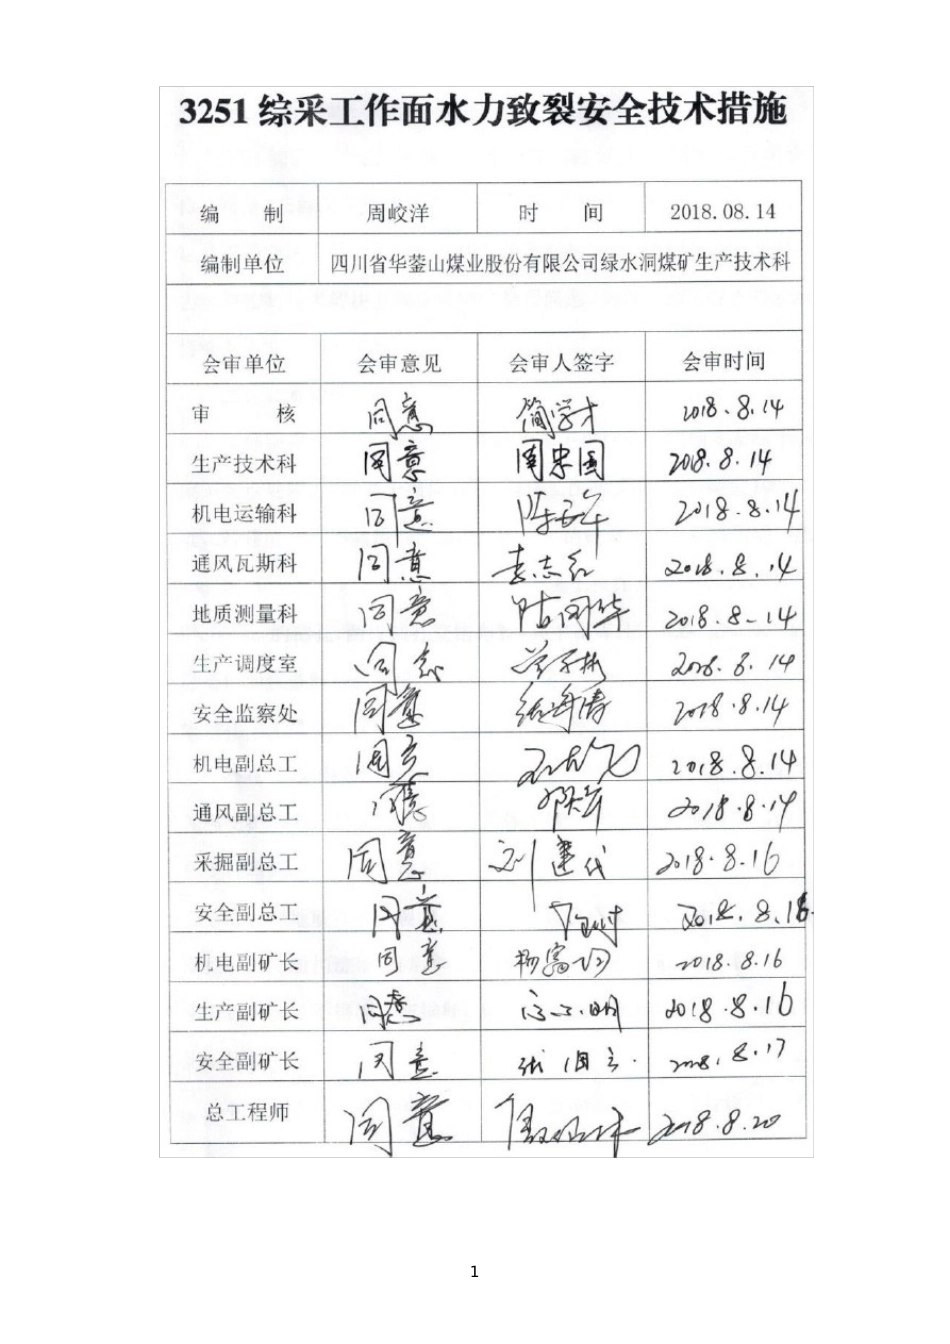 3251 综采工作面水力致裂安全技术措施
编 制 周皎洋 时 间 2018.08.14
编制单位 四川省华蓥山煤业股份有限公司绿水洞煤矿生产技术科
会审单位 会审意见 会审人签字 会审时间
审 核 同意 简学才 2018.8.14
生产技术科 同意 周忠国 2018.8.14
机电运输科 同意 2018.8.14
通风瓦斯科 同意 李志红 2018.8.14
地质测量科 同意 2018.8-14
生产调度室 同意 2018.8.14
安全监察处 同意 张海涛 2018.8.14
机电副总工 同意 2018.8.14
通风副总工 同意 2018.8.14
采掘副总工 同意 刘建代 2018.8.16
安全副总工 同意 2018.8.18
机电副矿长 同意 2018.8.16
生产副矿长 同意 2018.8.16
安全副矿长 同意 2018.8.17
总工程师 同意 2018.8.20
1